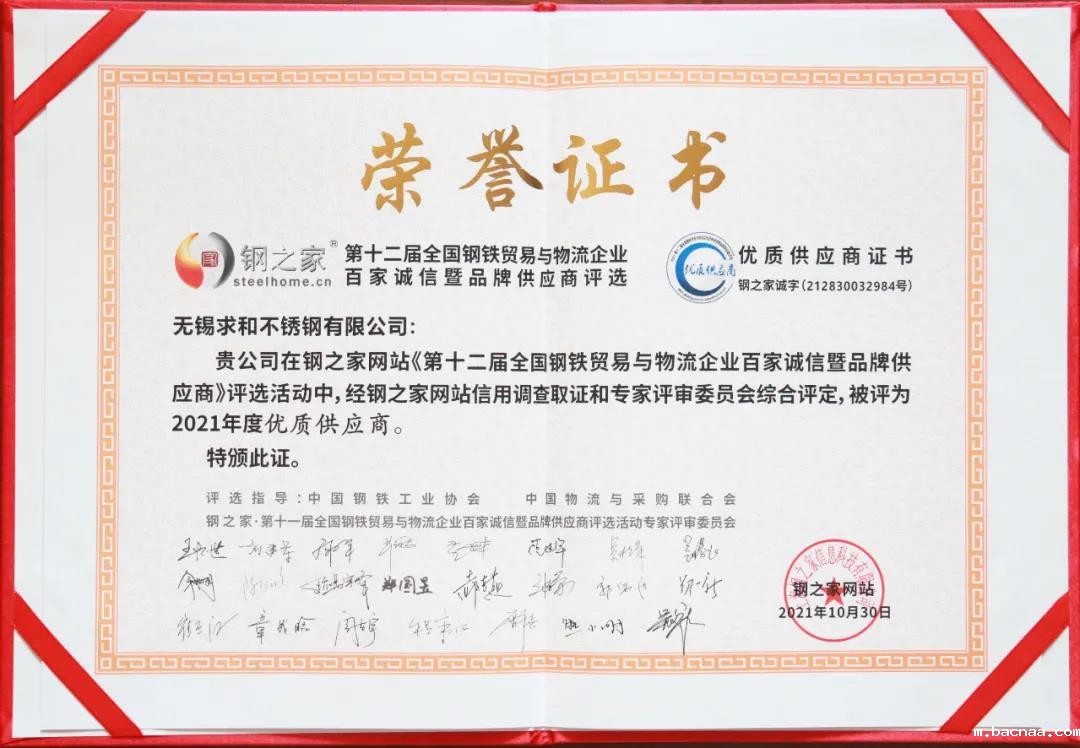 荣誉证书
钢之家®
steelhome.cn
第十二届全国钢铁贸易与物流企业
百家诚信暨品牌供应商评选
优质供应商
优质供应商证书
钢之家诚字(212830032984号)
无锡求和不锈钢有限公司:
贵公司在钢之家网站《第十二届全国钢铁贸易与物流企业百家诚信暨品牌供
应商》评选活动中,经钢之家网站信用调查取证和专家评审委员会综合评定,被评为
2021年度优质供应商。
特颁此证。
评选指导:中国钢铁工业协会 中国物流与采购联合会
钢之家·第十一届全国钢铁贸易与物流企业百家诚信暨品牌供应商评选活动专家评审委员会
钢之家网站
2021年10月30日
m.bacnaa.com